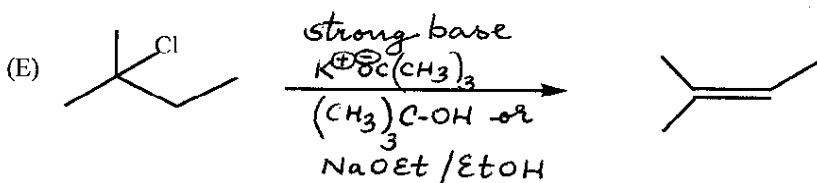 (E)
Cl
strong base
K⊕ ⊖OC(CH₃)₃
(CH₃)₃C-OH or
NaOEt/EtOH